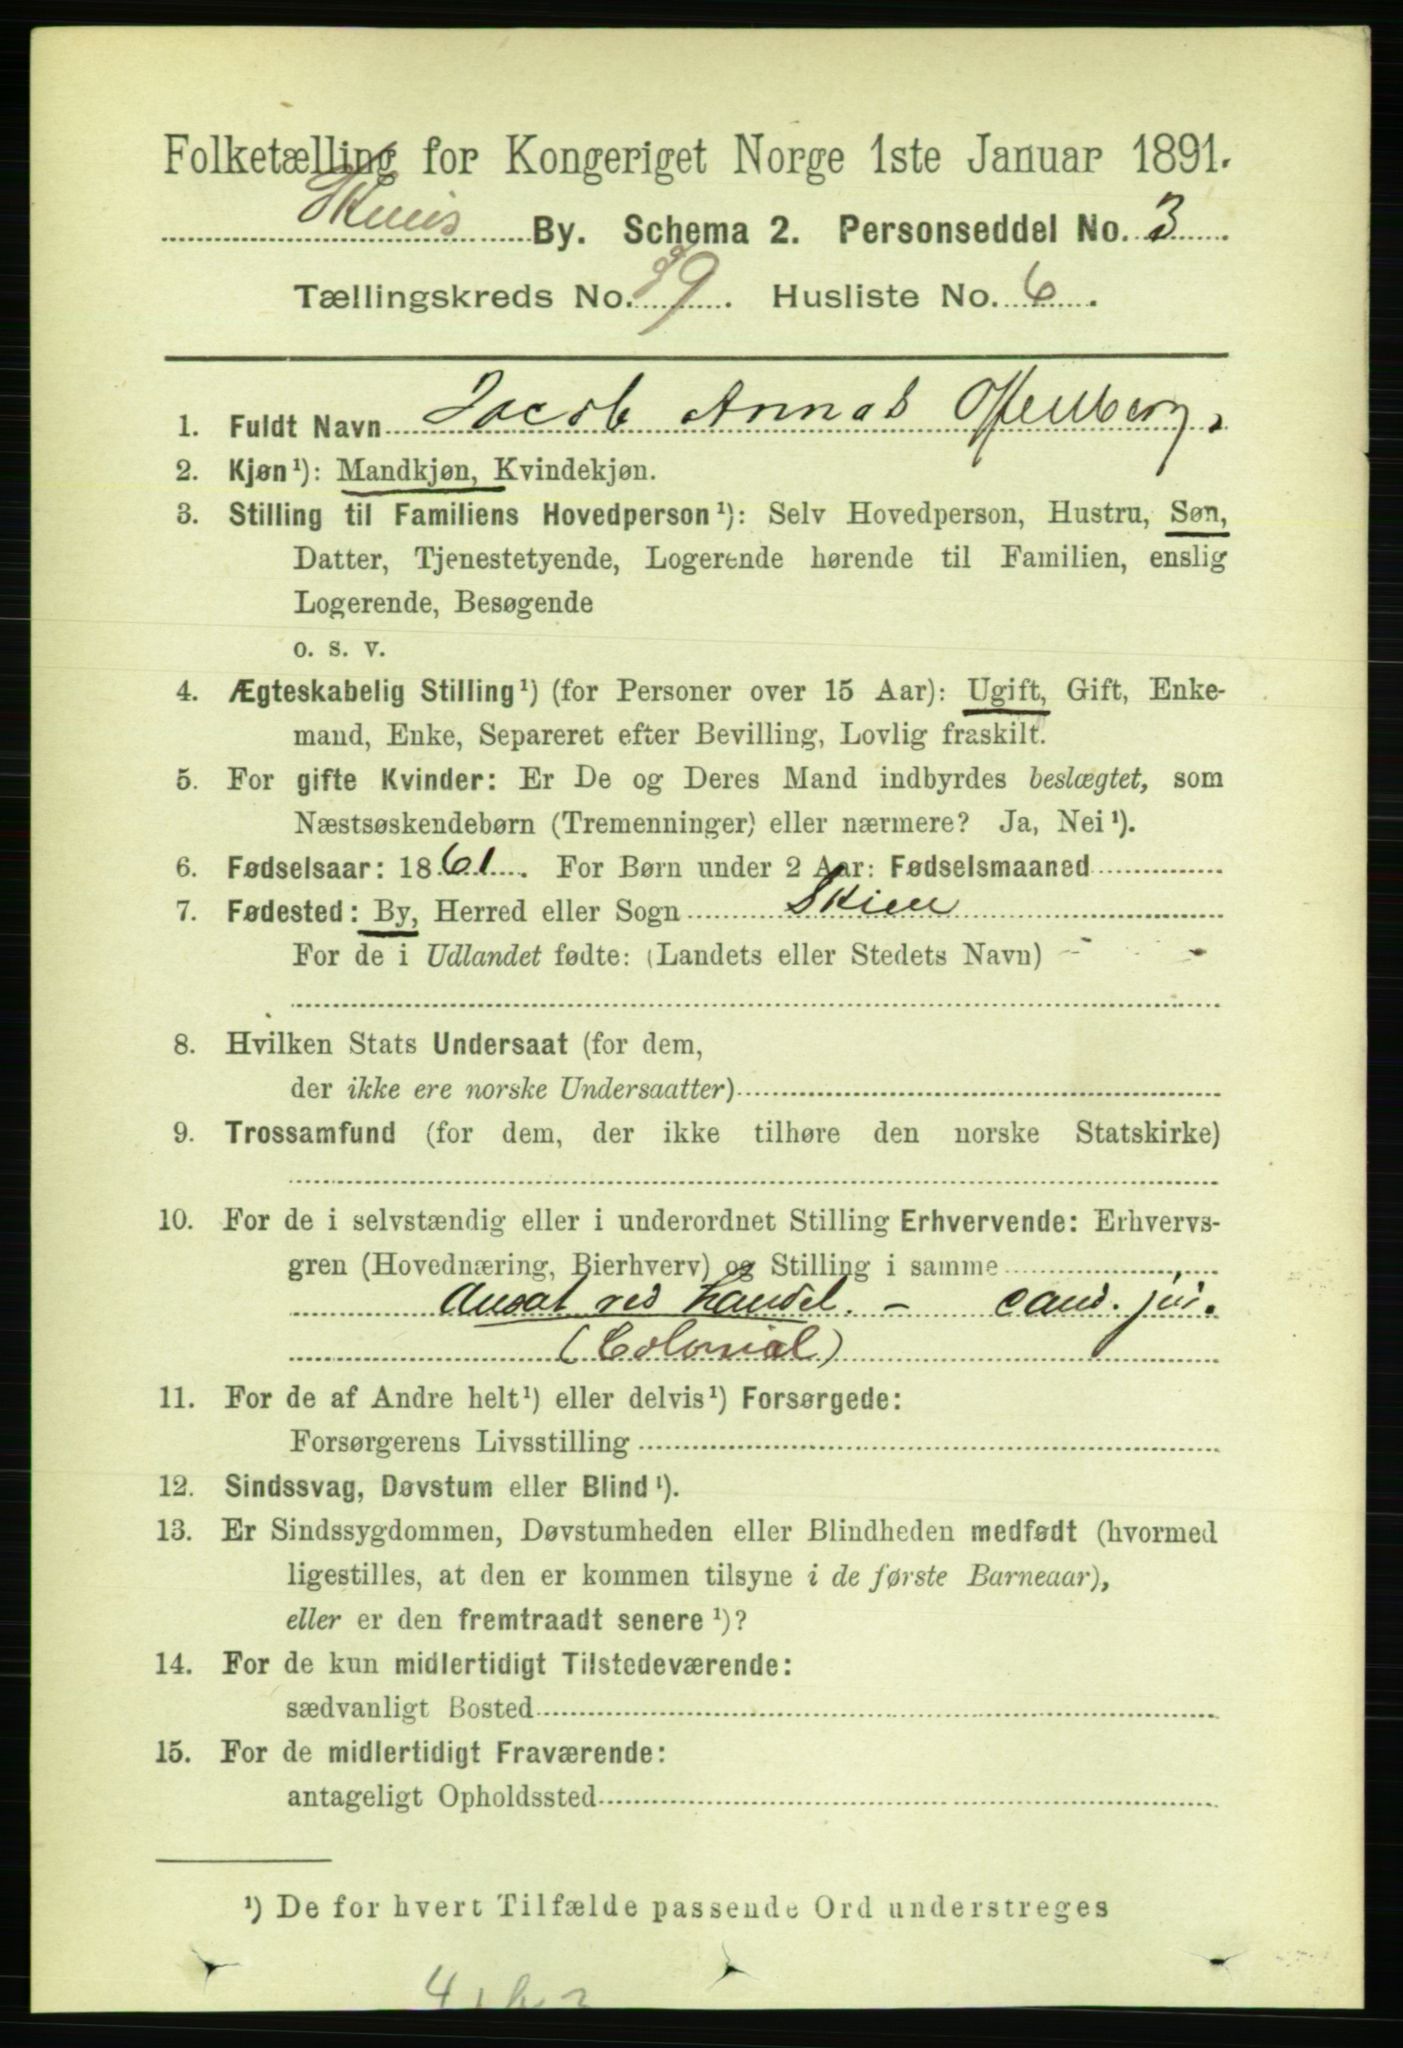 Folketælling for Kongeriget Norge 1ste Januar 1891.
Skiens By. Schema 2. Personseddel No. 3
Tællingskreds No. 39. Husliste No. 6.
1. Fuldt Navn Jacob Offenberg,
2. Kjøn¹): Mandkjøn, Kvindekjøn.
3. Stilling til Familiens Hovedperson¹): Selv Hovedperson, Hustru, Søn,
Datter, Tjenestetyende, Logerende hørende til Familien, enslig
Logerende, Besøgende
o. s. v.
4. Ægteskabelig Stilling¹) (for Personer over 15 Aar): Ugift, Gift, Enke-
mand, Enke, Separeret efter Bevilling, Lovlig fraskilt.
5. For gifte Kvinder: Er De og Deres Mand indbyrdes beslægtet, som
Næstsøskendebørn (Tremenninger) eller nærmere? Ja, Nei¹).
6. Fødselsaar: 1861. For Børn under 2 Aar: Fødselsmaaned
7. Fødested: By, Herred eller Sogn Skien
For de i Udlandet fødte: (Landets eller Stedets Navn)
8. Hvilken Stats Undersaat (for dem,
der ikke ere norske Undersaatter)
9. Trossamfund (for dem, der ikke tilhøre den norske Statskirke)
10. For de i selvstændig eller i underordnet Stilling Erhvervende: Erhvervs-
gren (Hovednæring, Bierhverv) og Stilling i samme
Ansat ved Handel. - cand. jur.
(Colonial)
11. For de af Andre helt¹) eller delvis¹) Forsørgede:
Forsørgerens Livsstilling
12. Sindssvag, Døvstum eller Blind¹).
13. Er Sindssygdommen, Døvstumheden eller Blindheden medfødt (hvormed
ligestilles, at den er kommen tilsyne i de første Barneaar),
eller er den fremtraadt senere¹)?
14. For de kun midlertidigt Tilstedeværende:
sædvanligt Bosted
15. For de midlertidigt Fraværende:
antageligt Opholdssted
¹) De for hvert Tilfælde passende Ord understreges